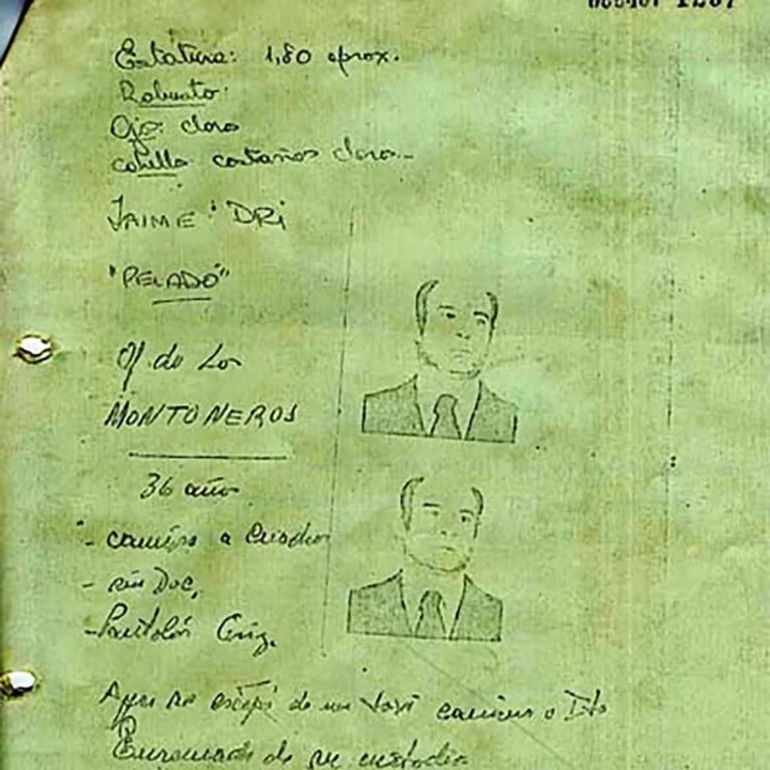 Estatura: 1,80 aprox.
Robusto:
Ojo: claro
cabello castaños claro.-
JAIME DRI
"PELADO"
Of de Los
MONTONEROS
36 años
- camisa a cuadros
- sin Doc.
- Pantalón Gris.
Ayer se escapó de un taxi camino a
de su custodia